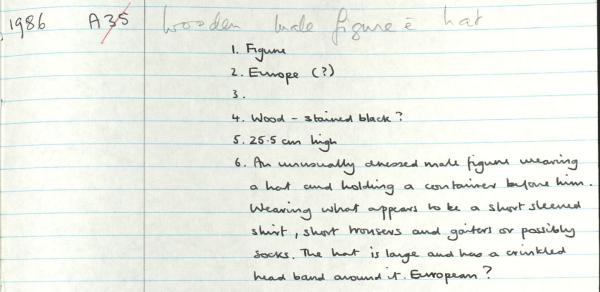 1986 A35 Wooden male figure c̄ hat
1. Figure
2. Europe (?)
3.
4. Wood - stained black?
5. 25.5 cm high
6. An unusually dressed male figure wearing
a hat and holding a container before him.
Wearing what appears to be a short sleeved
shirt, short trousers and gaiters or possibly
socks. The hat is large and has a crinkled
head band around it. European?